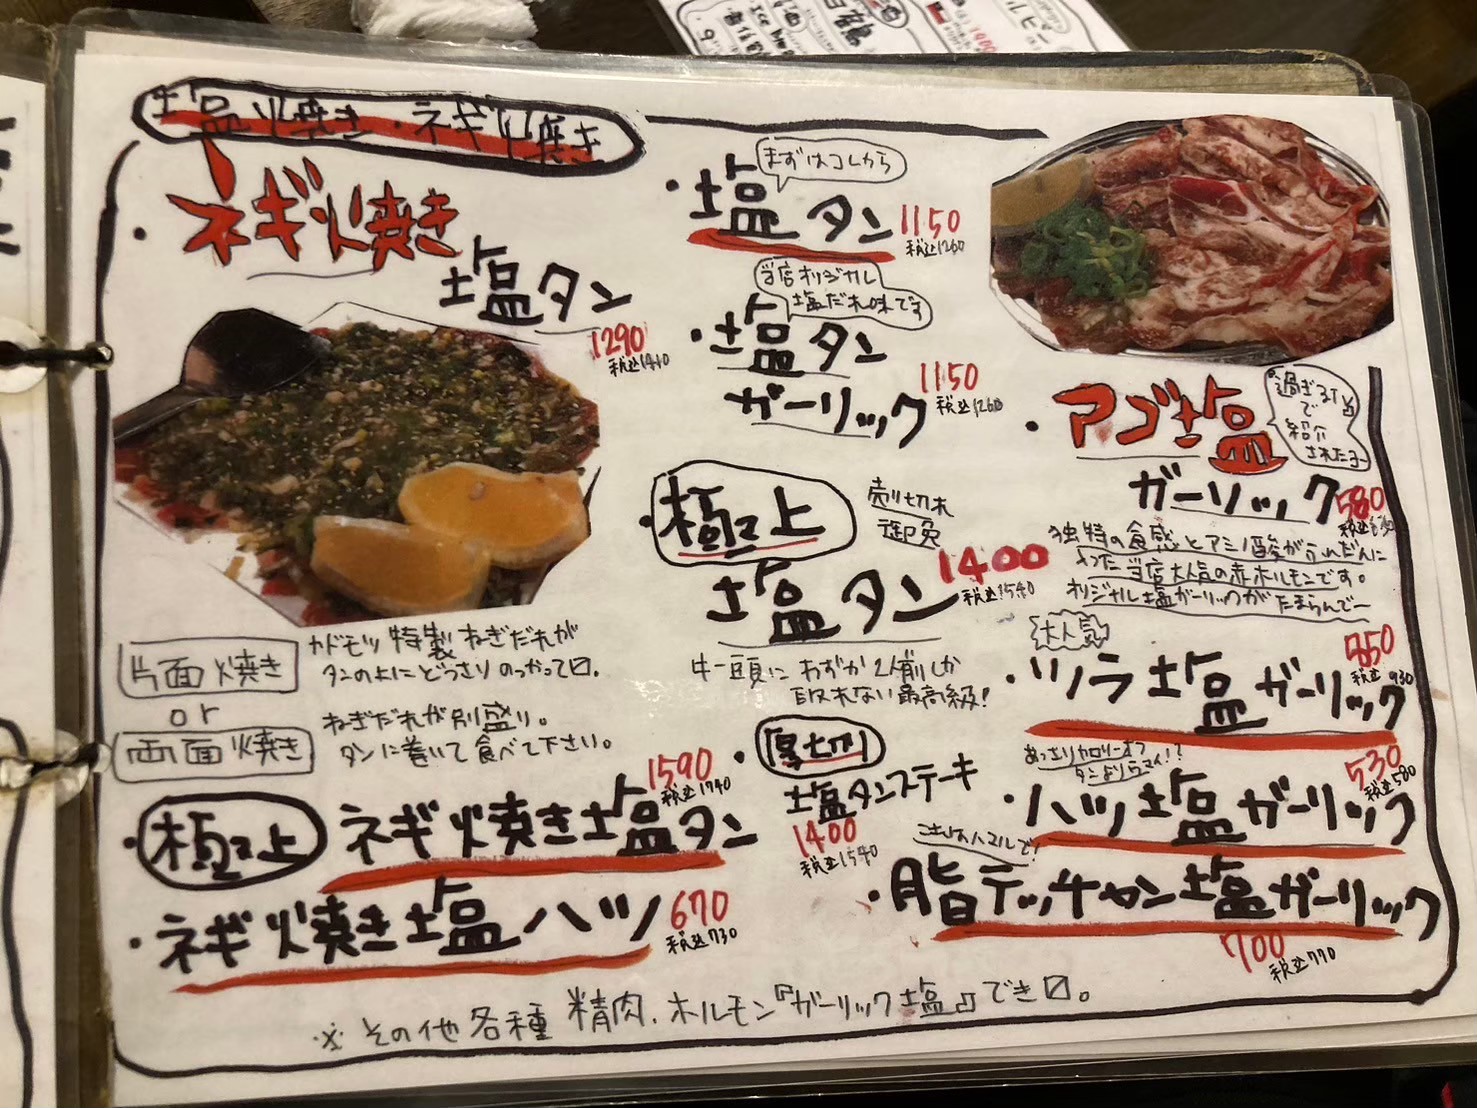 塩焼き・ネギ焼き
・ネギ焼き
塩タン
1290
税込1410
片面焼き
カドモツ特製ねぎだれが
タンの上にどっさりのっかって〼。
or
両面焼き
ねぎだれが別盛り。
タンに巻いて食べて下さい。
・極上 ネギ焼き塩タン
1590
税込1740
・ネギ焼き塩ハツ
670
税込730
まずはコレから
・塩タン
1150
税込1260
当店オリジナル
塩だれ味です
・塩タン
ガーリック
1150
税込1260
・極上
売り切れ
御免
塩タン
1400
税込1540
牛一頭にわずか2人前しか
取れない最高級!
・厚切り
塩タンステーキ
1400
税込1540
・アゴ塩
過ぎるTVで
紹介
されたヨ~
ガーリック
580
独特の食感とアミノ酸がふんだんに
入った当店大人気の赤ホルモンです。
オリジナル塩ガーリックがたまらんで~
大人気
・ツラ塩ガーリック
850
税込930
あっさりカロリーオフ
タンよりウマイ!?
・ハツ塩ガーリック
530
税込580
・脂テッチャン塩ガーリック
700
税込770
※その他各種精肉、ホルモン『ガーリック塩』でき〼。